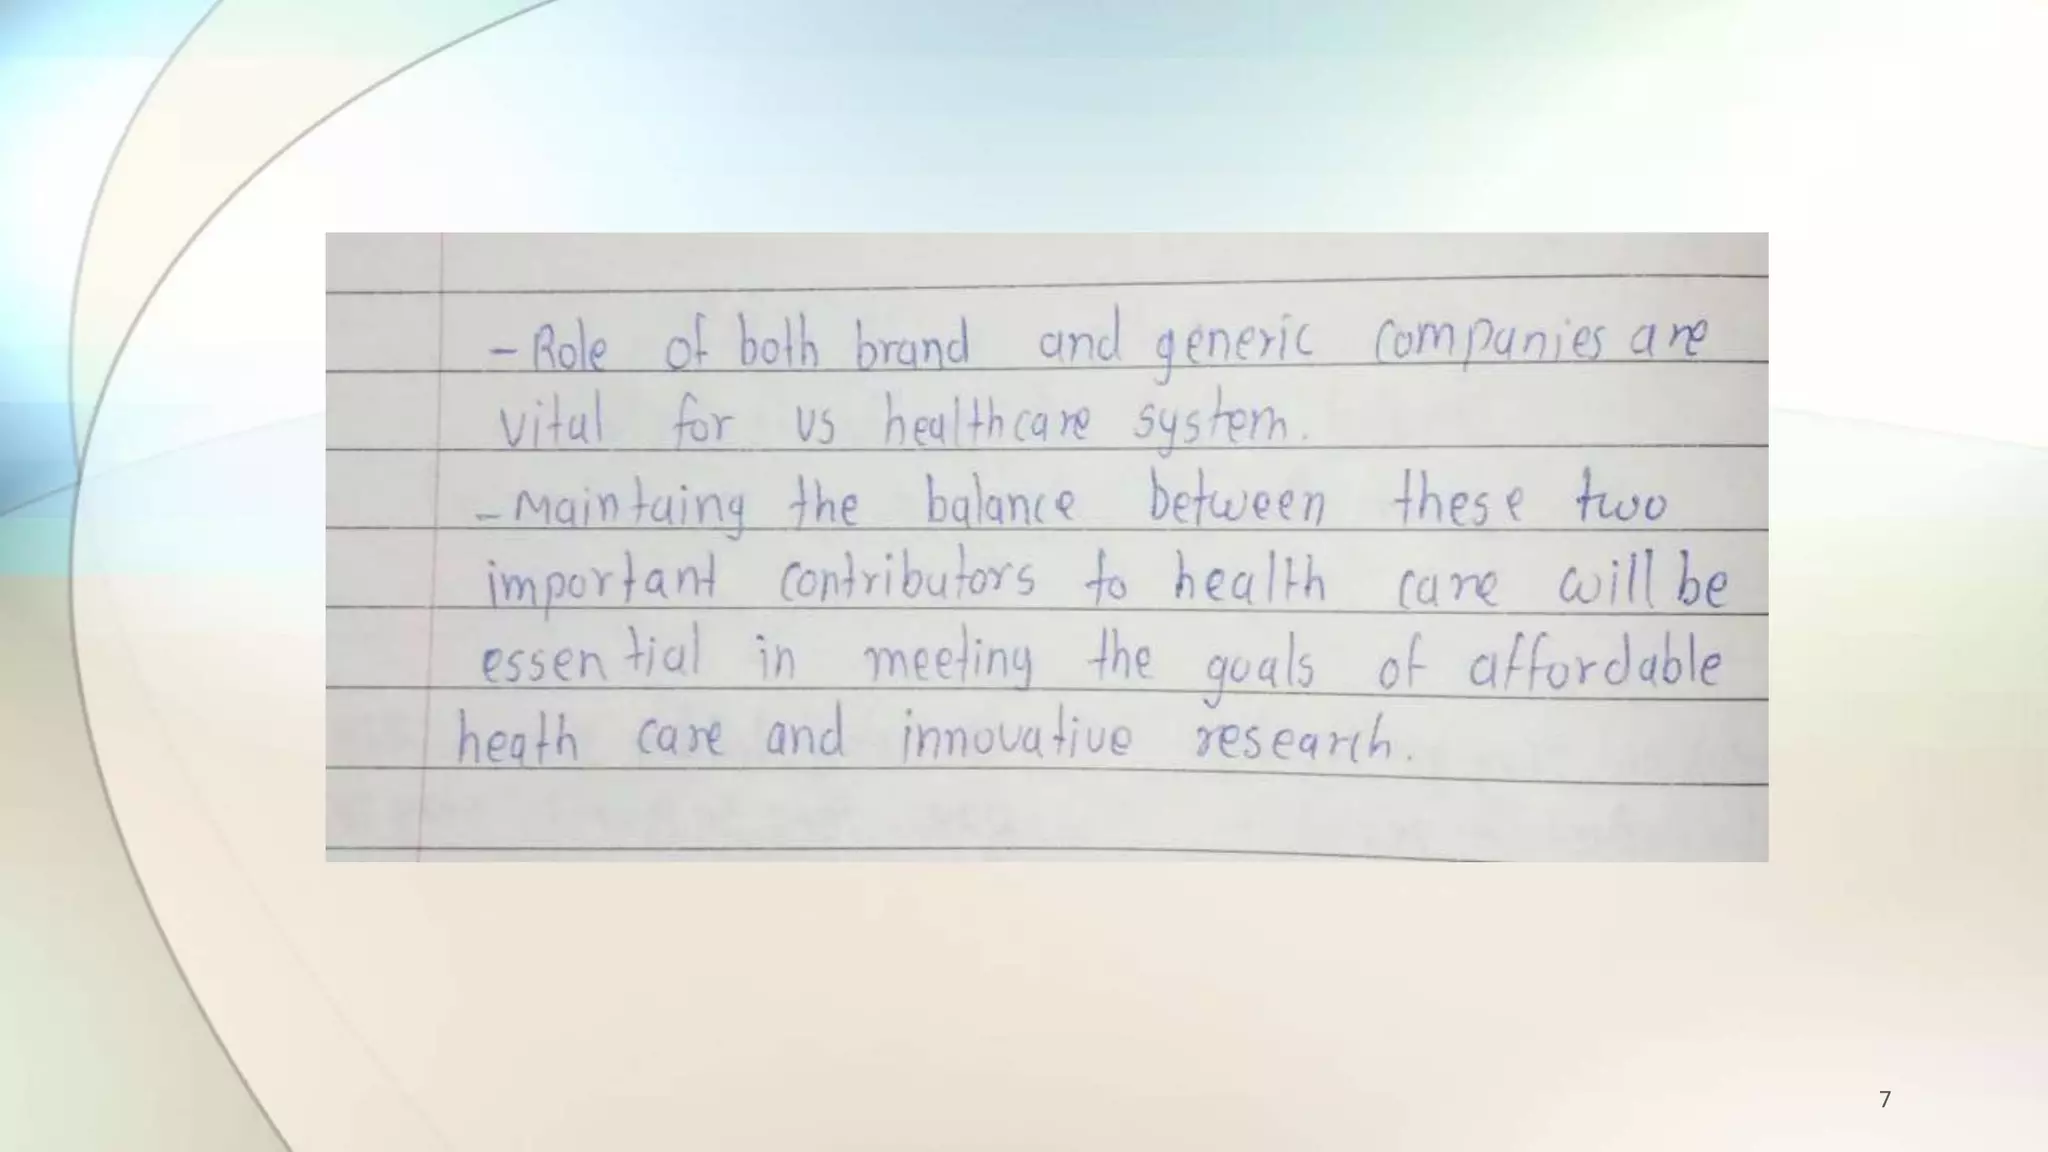 - Role of both brand and generic companies are
vital for us healthcare system.
- Maintaing the balance between these two
important contributors to health care will be
essential in meeting the goals of affordable
heath care and innovative research.
7